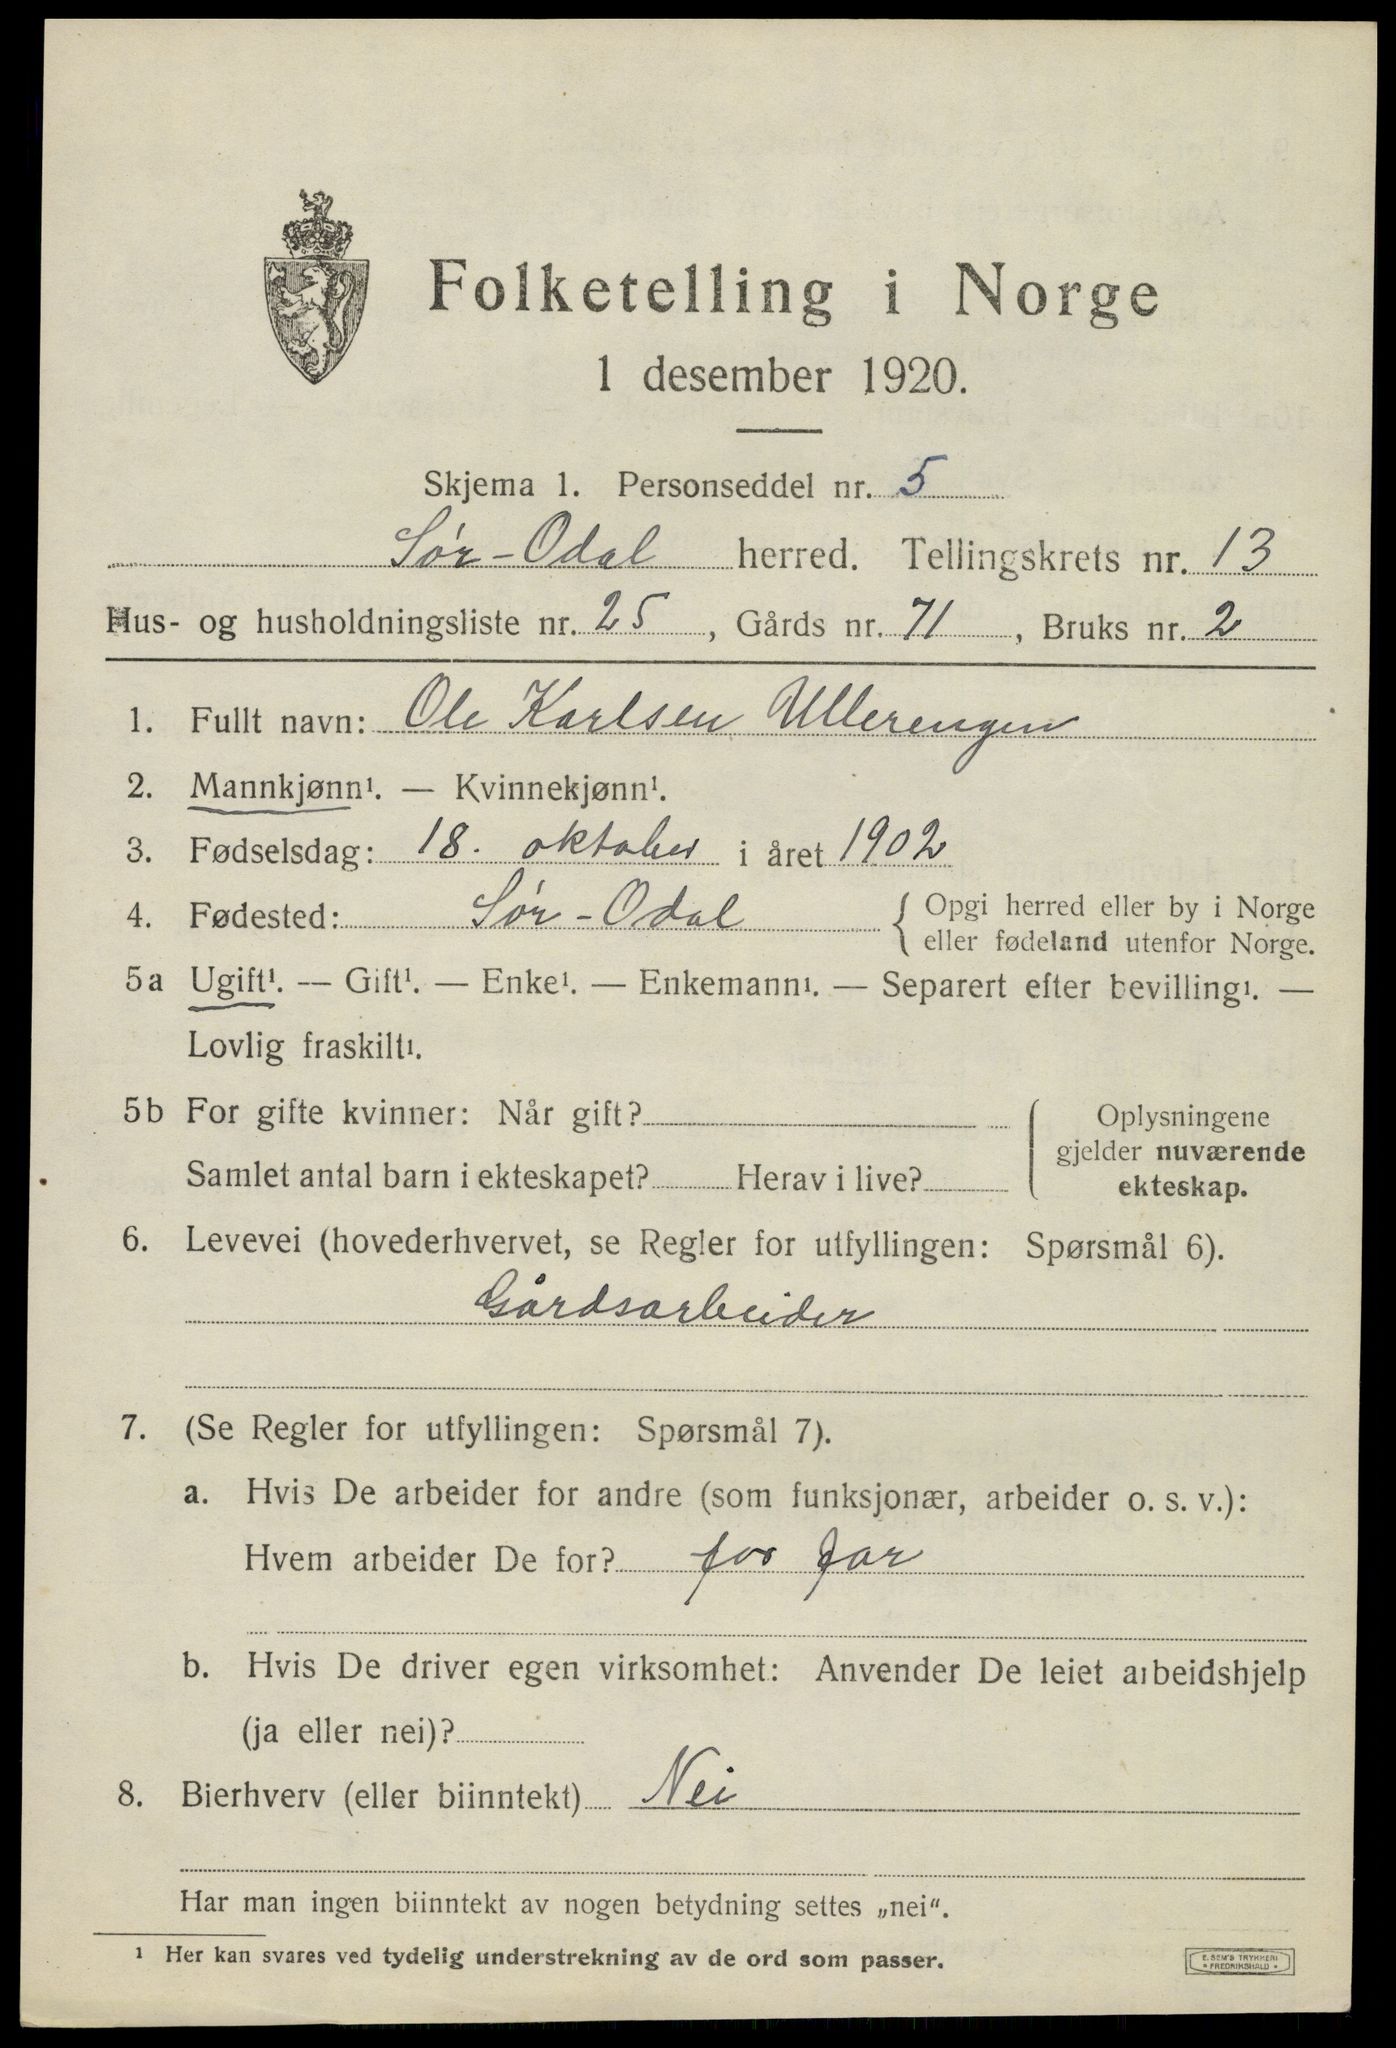 Folketelling i Norge
1 desember 1920.
Skjema 1. Personseddel nr. 5
Sør-Odal herred. Tellingskrets nr. 13
Hus- og husholdningsliste nr. 25, Gårds nr. 71, Bruks nr. 2
1. Fullt navn: Ole Karlsen Ullerengen
2. Mannkjønn¹. — Kvinnekjønn¹.
3. Fødselsdag: 18. oktober i året 1902
4. Fødested: Sør-Odal { Opgi herred eller by i Norge
eller fødeland utenfor Norge.
5a Ugift¹. — Gift¹. — Enke¹. — Enkemann¹. — Separert efter bevilling¹. —
Lovlig fraskilt¹.
5b For gifte kvinner: Når gift?
Samlet antal barn i ekteskapet? Herav i live?
Oplysningene
gjelder nuværende
ekteskap.
6. Levevei (hovederhvervet, se Regler for utfyllingen: Spørsmål 6).
Gårdsarbeider
7. (Se Regler for utfyllingen: Spørsmål 7).
a. Hvis De arbeider for andre (som funksjonær, arbeider o. s. v.):
Hvem arbeider De for? for far
b. Hvis De driver egen virksomhet: Anvender De leiet arbeidshjelp
(ja eller nei)?
8. Bierhverv (eller biinntekt) Nei
Har man ingen biinntekt av nogen betydning settes „nei“.
¹ Her kan svares ved tydelig understrekning av de ord som passer.
E. SEM'S TRYKKERI
• FREDRIKSHALD •